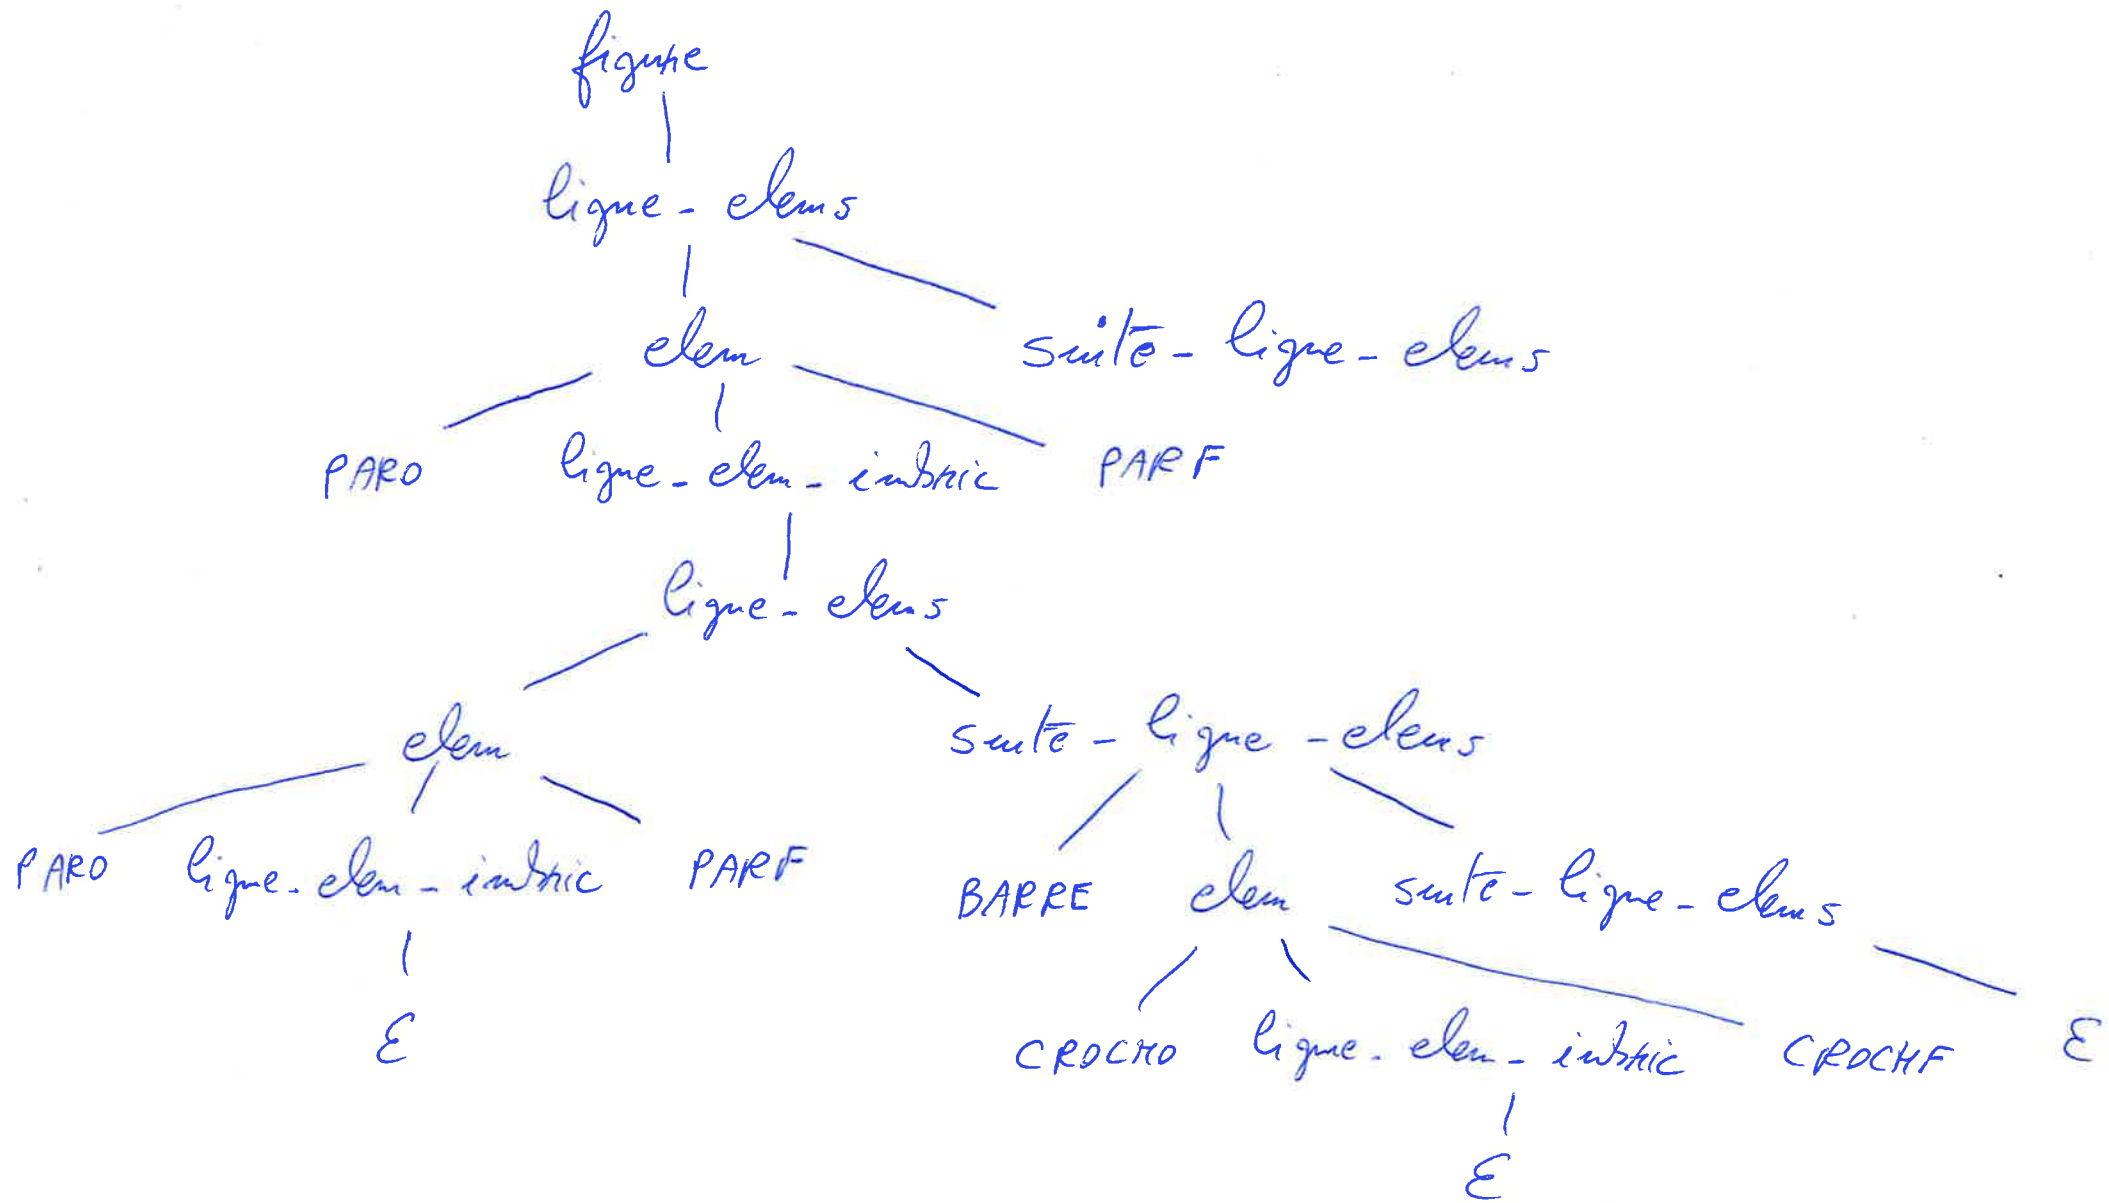 figure
ligne-elems
elem suite-ligne-elems
PARO ligne-elem-imbric PARF
ligne-elems
elem suite-ligne-elems
PARO ligne-elem-imbric PARF BARRE elem suite-ligne-elems
ε CROCHO ligne-elem-imbric CROCHF ε
ε